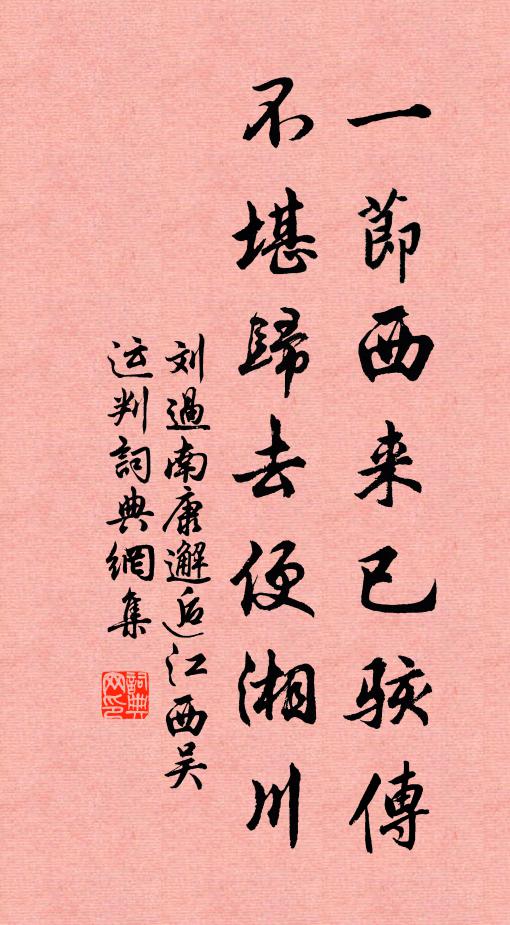 一節西来已駭傳
不堪歸去便湘川
刘過南康邂逅江西吴
运判詞典網集
詞典
网印